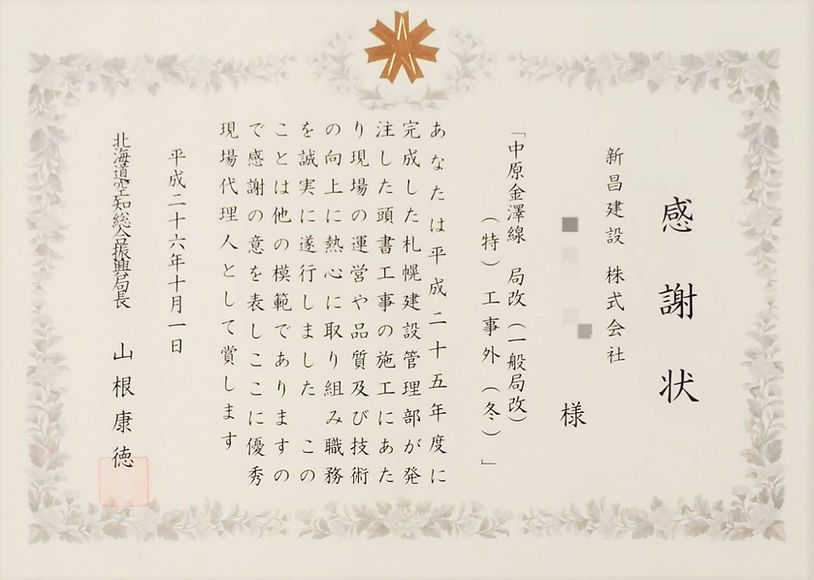 感謝状
新昌建設 株式会社
様
「中原金澤線 局改(一般局改)
(特)工事外(冬)」
あなたは平成二十五年度に
完成した札幌建設管理部が発
注した頭書工事の施工にあた
り現場の運営や品質及び技術
の向上に熱心に取り組み職務
を誠実に遂行しました この
ことは他の模範でありますの
で感謝の意を表しここに優秀
現場代理人として賞します
平成二十六年十月一日
北海道空知総合振興局長 山根康徳